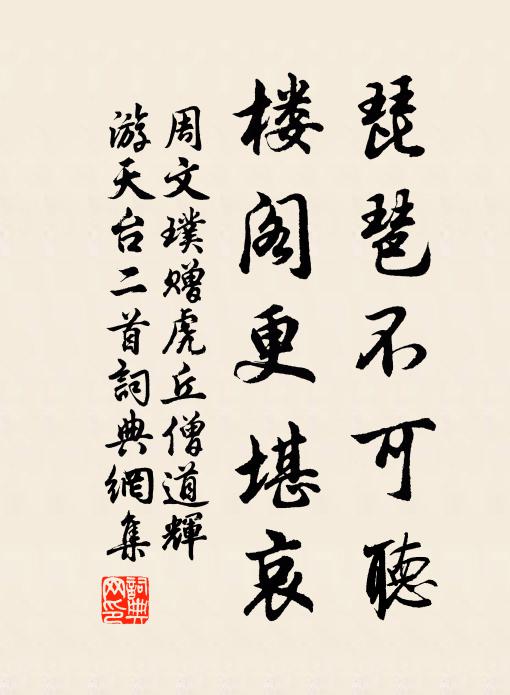 琵琶不可聽
楼阁更堪哀
周文璞赠虎丘僧道輝
游天台二首詞典網集
詞典网印